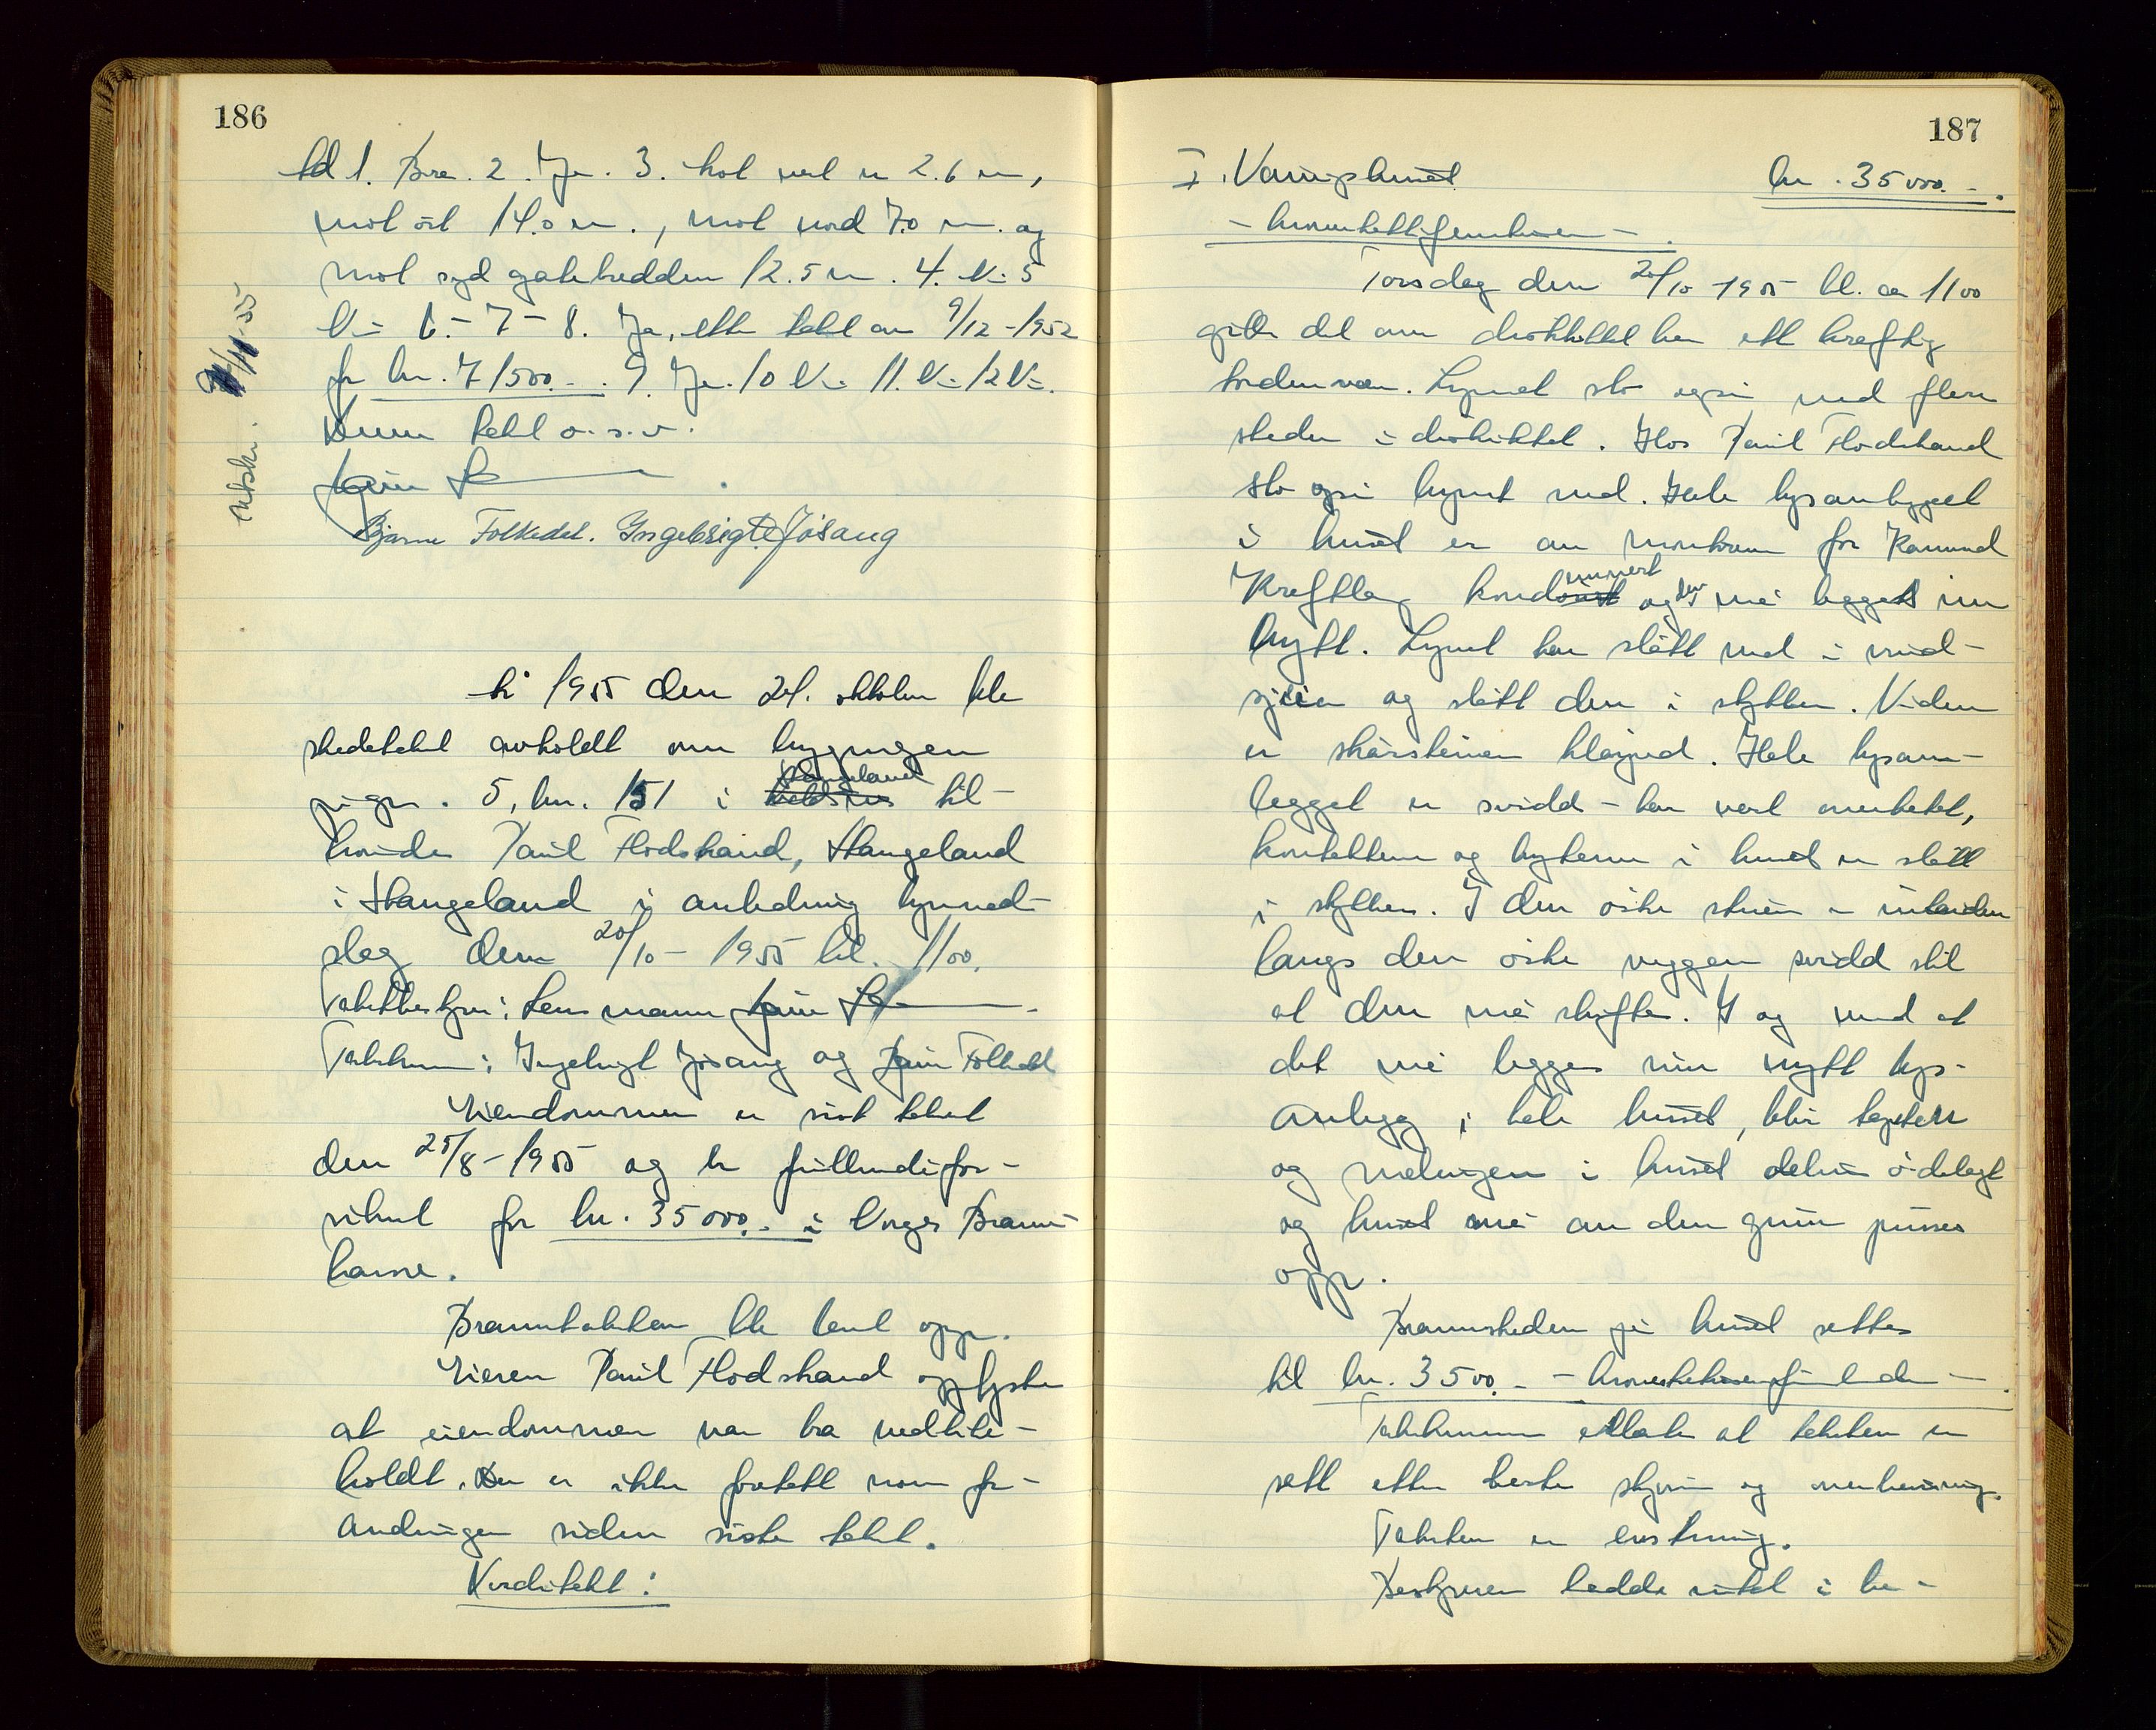 186
til 1. Bra. 2. Ja. 3. hol vest er 2.6 m,
mot öst 14.0 m., mot nord 7.0 m. og
mot syd gatebredden 12.5 m. 4. Nei 5
Nei 6 - 7 - 8. Ja, etter takst av 9/12-1952
for kr. 71500.- . 9. Ja. 10 Nei 11. Nei 12 Nei.
Denne takst o.s.v.
Bjarne Folkedal. Ingebrigt Jösang
utskr. 9/11-55
År 1955 den 24. oktober ble
skadetakst avholdt over bygningen
på gnr. 5, bnr. 151 i Hangeland til-
hörende Paul Flodstrand, Hangeland
i Hangeland i anledning lynned-
slag den 20/10-1955 kl. 1100.
Takstbestyrer: Lensmann
Takstmenn: Ingebrigt Jösang og Folkedal
Eiendommen er sist takst
den 25/8-1955 og er fullverdifor-
sikret for kr. 35000.- i Norges Brann-
kasse.
Branntaksten ble lest opp.
Eieren Paul Flodstrand opplyste
at eiendommen var bra vedlike-
holdt. Der er ikke foretatt noen for-
andringer siden siste takst.
Verditakst:
187
I. Våningshuset kr. 35000.-.
- kronertrettifemtusen -.
Torsdag den 20/10-1955 kl. ca 1100
gikk det over distriktet her ett kraftig
tordenver. Lynet slo også ned flere
steder i distriktet. Hos Paul Flodstrand
slo også lynet ned. Hele lysanlegget
i huset er av montören for Karmsund
Kraftlag kondemnert og den må legges inn
nytt. Lynet har slått ned i vind-
skjeien og slått den i stykker. Videre
er skorsteinen klöyvd. Hele lysan-
legget er svidd - har vert overhetet,
kontakten og bryteren i huset er slått
i stykker. I den östre stuen er
langs den östre veggen svidd slik
at den må skiftes. I og med at
det må legges inn nytt lys-
anlegg i hele huset, blir tapeten
og malingen i huset delvis ödelagt
og huset må av den grunn pusses
opp.
Brannskaden på huset settes
til kr. 3500.- - kronertretusenfemhundre -.
Takstmennene erklærte at taksten er
satt etter beste skjönn og overbevisning.
Taksten er enstemmig.
Bestyreren hadde intet å be-